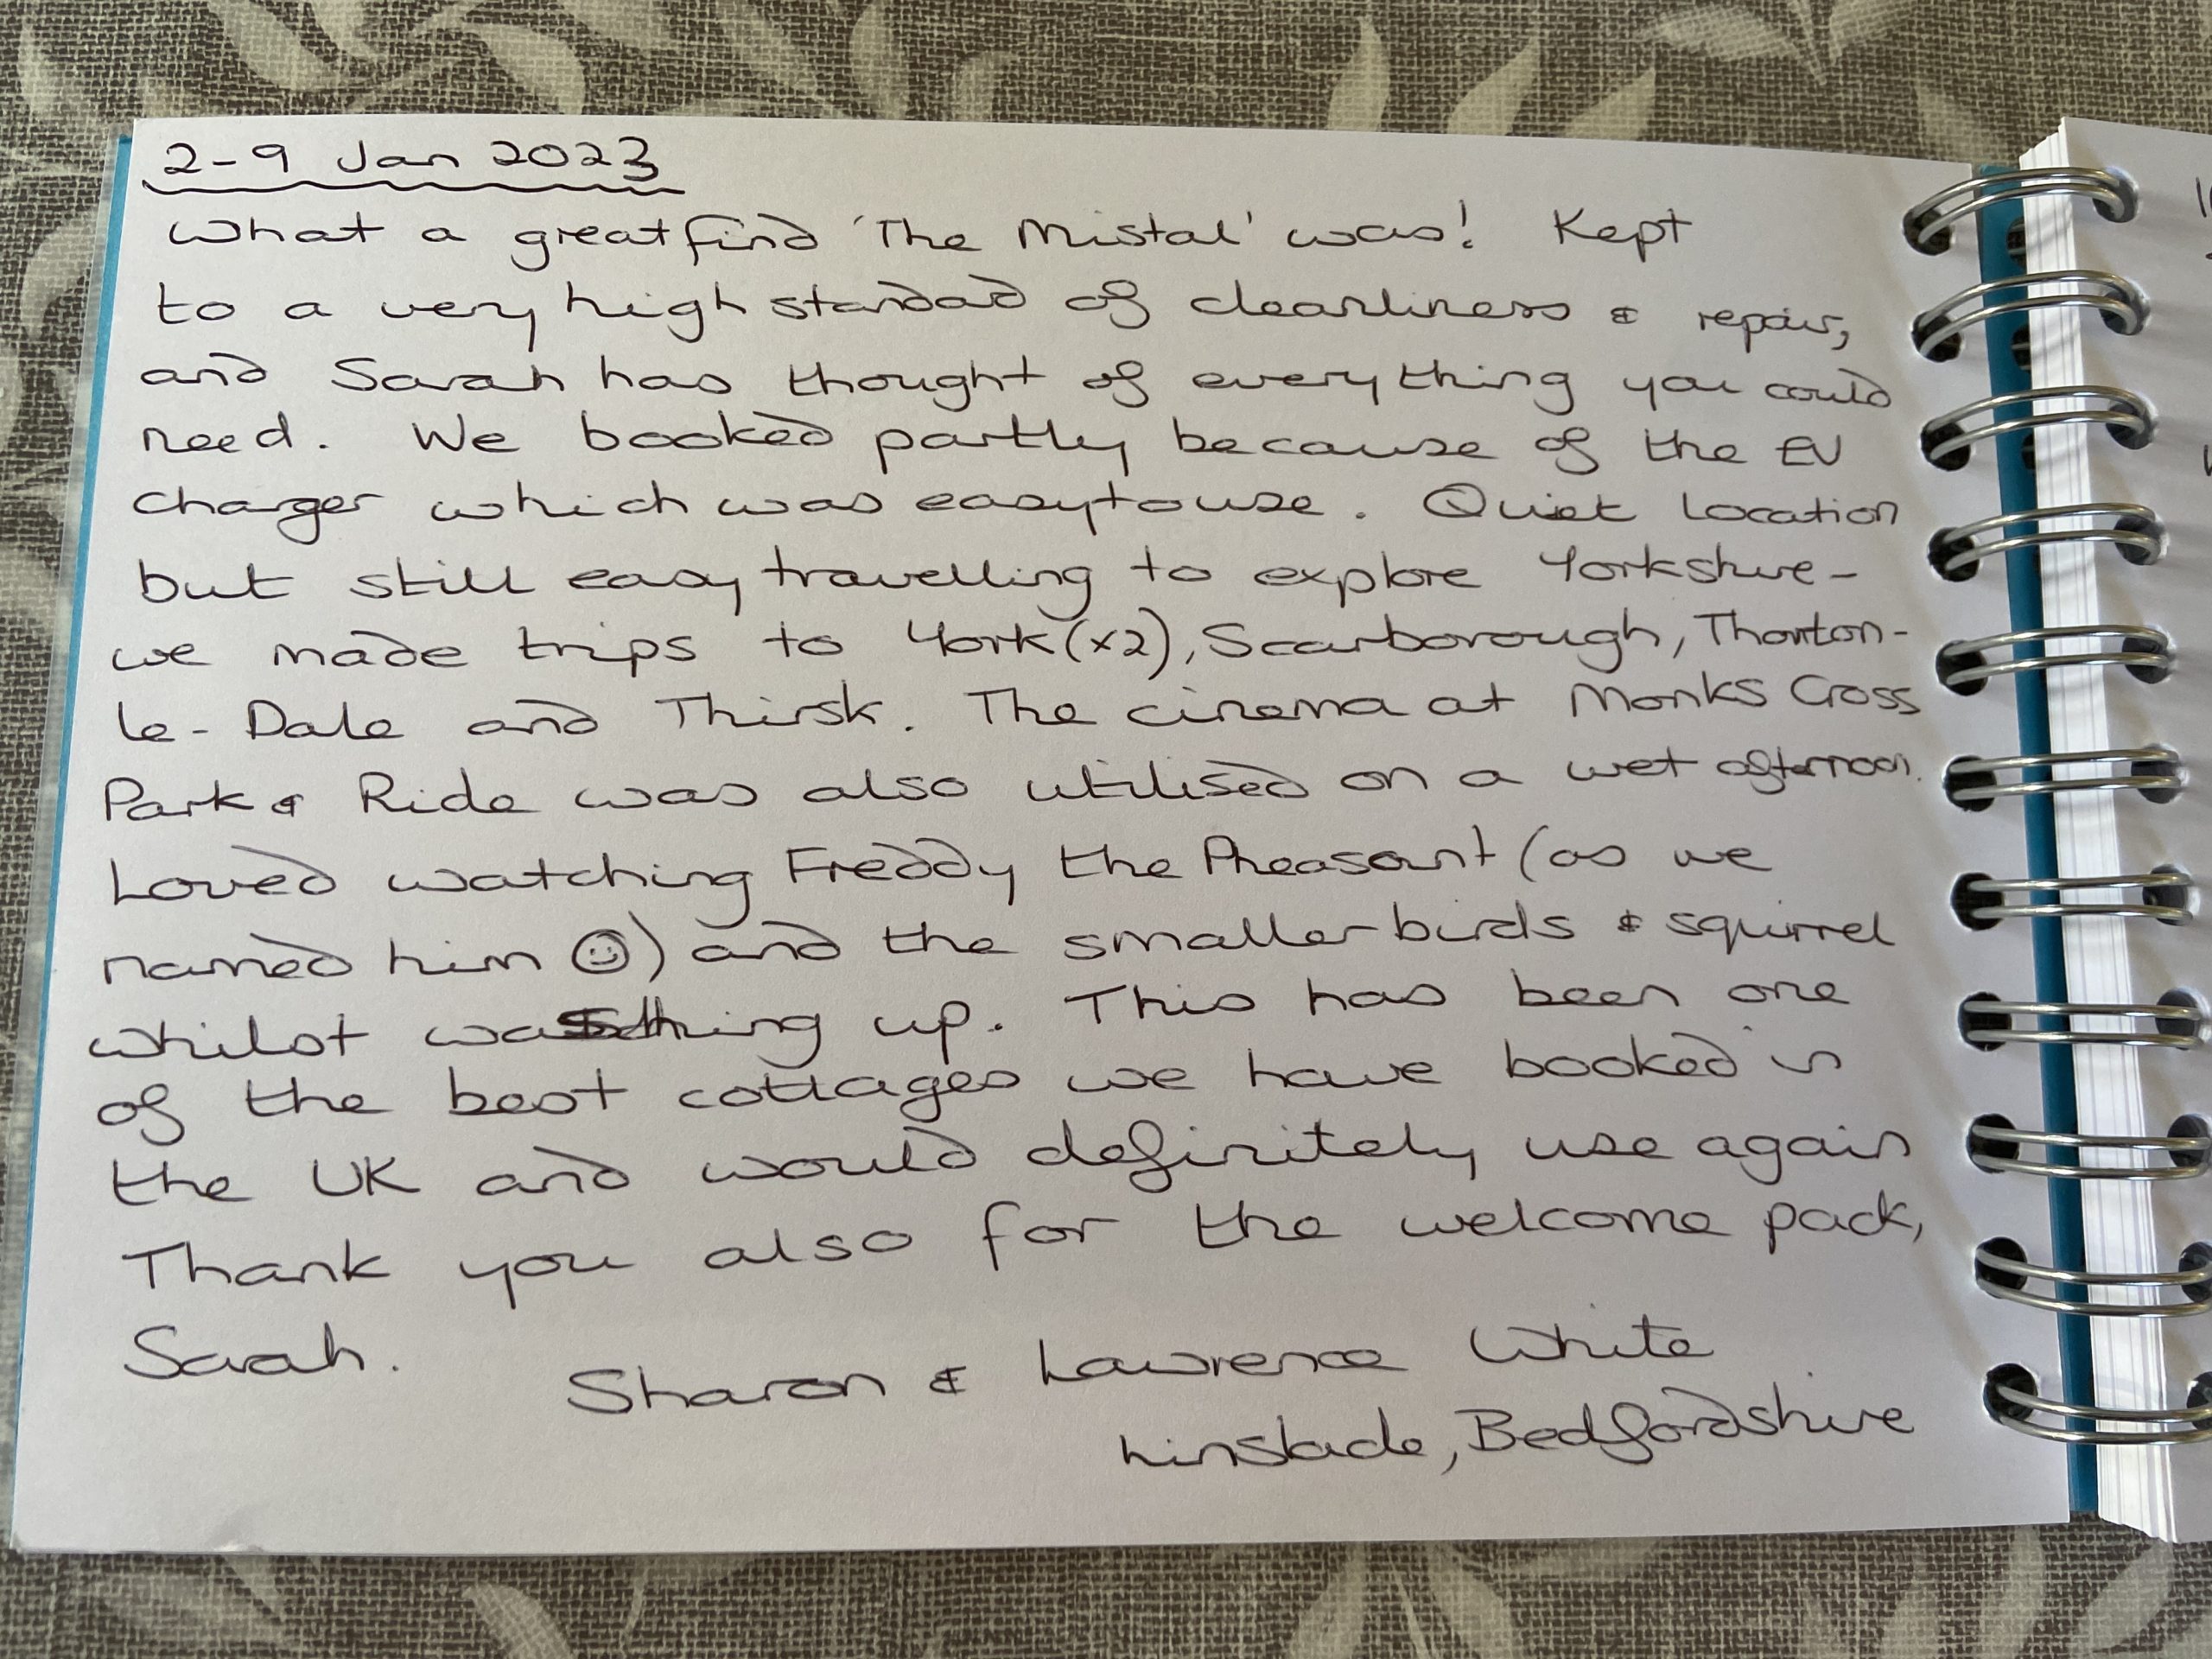 2-9 Jan 2023
What a great find 'The Mistal' was! Kept
to a very high standad of cleanliness & repair,
and Sarah has thought of everything you could
need. We booked partly because of the EV
charger which was easy to use. Quiet Location
but still easy travelling to explore Yorkshire -
we made trips to York (x2), Scarborough, Thornton-
le-Dale and Thirsk. The cinema at Monks Cross
Park & Ride was also utilised on a wet afternoon.
Loved watching Freddy the Pheasant (as we
named him ☺) and the smaller birds & squirrel
whilst washing up. This has been one
of the best cottages we have booked in
the UK and would definitely use again
Thank you also for the welcome pack,
Sarah.
Sharon & Lawrence White
Linslade, Bedfordshire